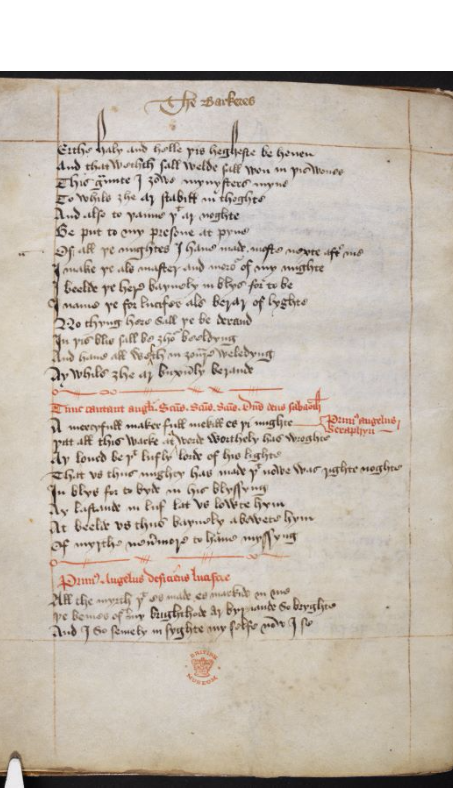 The Barkeres
Erthe haly and helle þis hegheste be heuen
And that welth sall welde sall won in þis wones
This graunte I ȝowe mynysters myne
To whils ȝhe ar stabill in thoghte
And also to þaime þat ar noghte
Be put to my presone at pyne
Of all þe mightes I haue made moste nexte aftir me
I make þe als master and merour of my mighte
I beelde þe here baynely in blys for to be
I name þe for lucifer als berar of lyghte
No thyng here sall þe be derand
In þis blis sall be ȝhour beeldyng
And haue all welth in ȝoure weledyng
Ay whils ȝhe ar buxumly berande
Tunc cantant angeli Scūs. Scūs. Scūs. dn̄s deus sabaoth
A mercyfull maker full mekill es þi mighte
Primus angelus Seraphyn
þat all this warke at worde worthely has wroghte
Ay loued be þat lufly lorde of his lighte
That vs thus mighty has made þat nowe was righte noghte
In blys for to byde in his blyssyng
Ay lastande in luf lat vs lowte hym
At beelde vs thus baynely abowete hym
Of myrthe neuermore to haue myssyng
Primus Angelus deficiens lucifere
All the myrth þat es made es markide in me
þe bemes of my brighthode ar byrnande so bryghte
And I so semely in syghte my selfe now I se
BRITISH MUSEUM